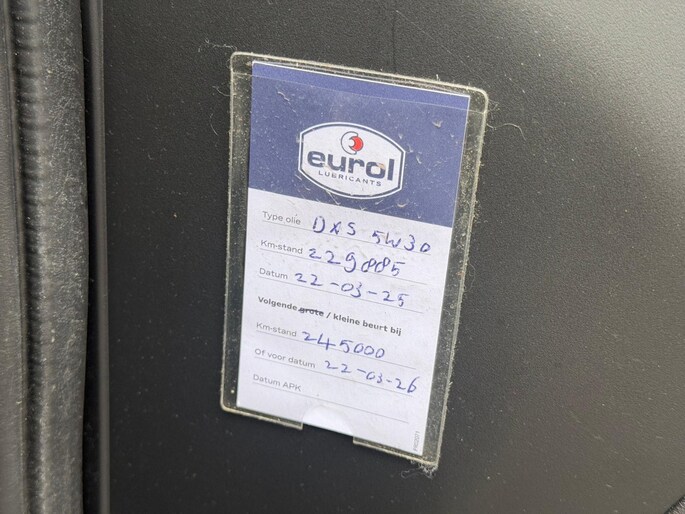 eurol
LUBRICANTS
Type olie DXS 5W30
Km-stand 229885
Datum 22-03-25
Volgende grote / kleine beurt bij
Km-stand 245000
Of voor datum 22-03-26
Datum APK